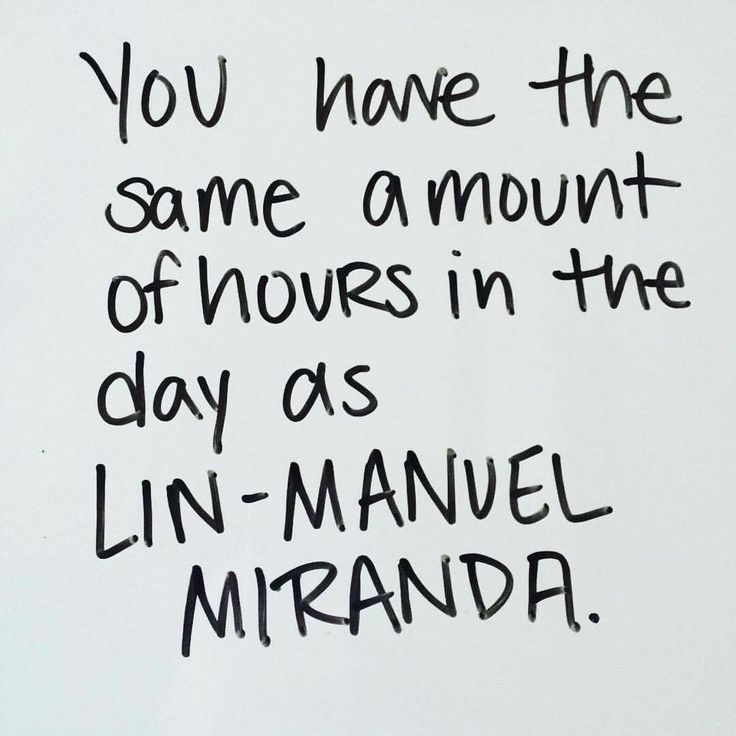 You have the
same amount
of hours in the
day as
LIN-MANUEL
MIRANDA.